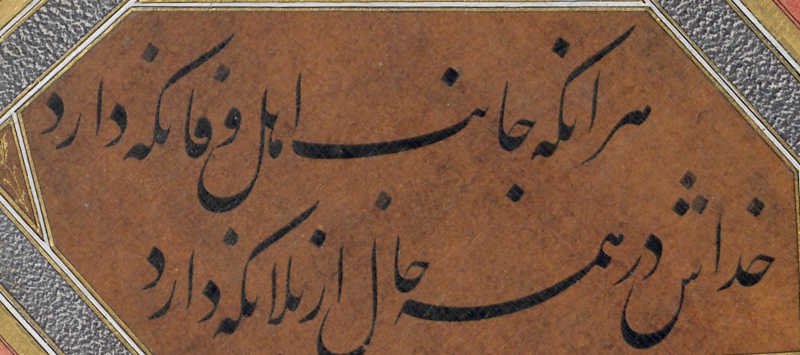 هر آنکه جانب اهل وفا نگه دارد
خداش در همه حال از بلا نگه دارد